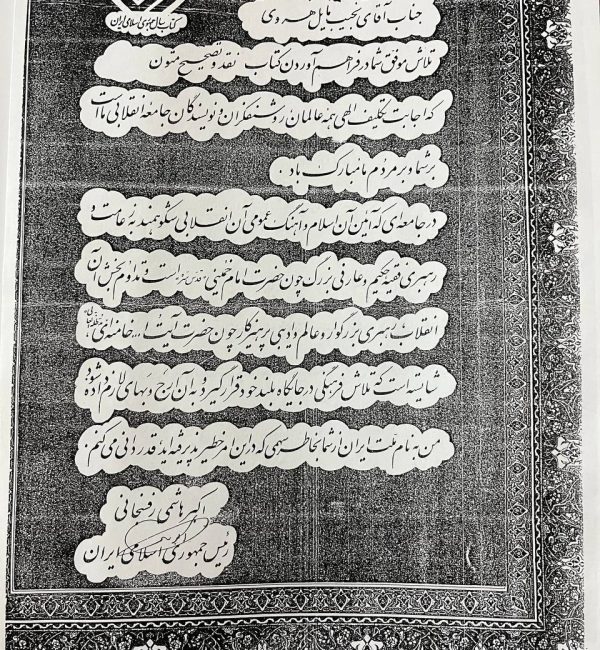 کتاب سال جمهوری اسلامی ایران
جناب آقای نجیب مایل هروی
تلاش موفق شما در فراهم آوردن کتاب نقد و تصحیح متون
که اجابت تکلیف الهی همه عالمان، روشنفکران و نویسندگان جامعه انقلابی ما است
بر شما و بر مردم ما مبارک باد.
در جامعه‌ای که آئین آن اسلام و آهنگ عمومی آن انقلابی شکوهمند به زعامت و
رهبری فقیه حکیم و عارفی بزرگ چون حضرت امام خمینی است و تداوم بخش آن
انقلاب رهبری بزرگوار و عالم و ادیبی پرهیزگار چون حضرت آیت ا... خامنه‌ای
شایسته است که تلاش فرهنگی در جایگاه بلند خود قرار گیرد و به آن ارج و بهای لازم داده شود
من به نام ملت ایران از شما بخاطر سهمی که در این امر خطیر پذیرفته‌اید قدردانی می‌کنم.
اکبر هاشمی رفسنجانی
رئیس جمهوری اسلامی ایران